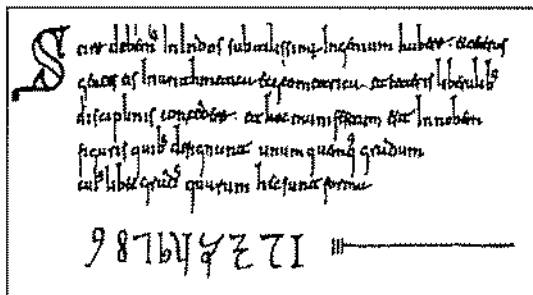 Scire debem⁹ In Indos subtilissimū Ingenium habere. et ceteras
gentes eis In arithmetica et geometrica et ceteris liberalib⁹
disciplinis concedere et hoc manifestum est In nobem
figuris quib⁹ designant unum quemq; gradum
cui⁹libet grad⁹ quarum hec sunt forma
9 8 7 6 5 4 3 2 1